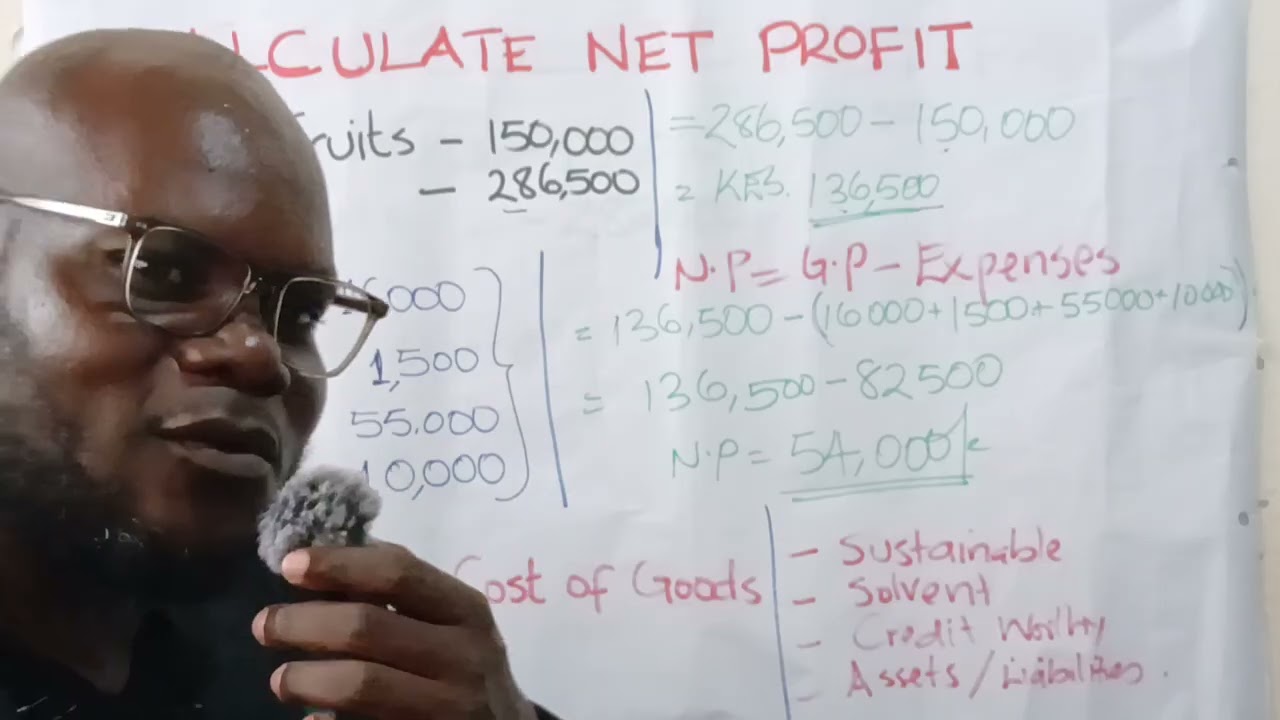 LCULATE NET PROFIT
ruits - 150,000
- 286,500
= 286,500 - 150,000
= KES. 136,500
6,000
1,500
55.000
10,000
N.P = G.P - Expenses
= 136,500 - (16000+1500+55000+10000)
= 136,500 - 82500
N.P = 54,000/=
Cost of Goods
- Sustainable
- Solvent
- Credit Worthy
- Assets / Liabilities.